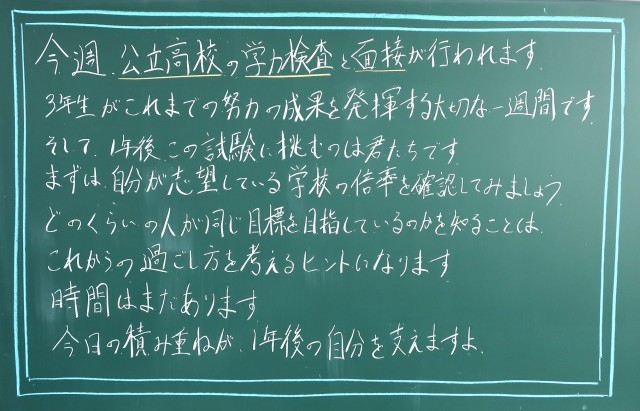 今週、公立高校の学力検査と面接が行われます。
3年生がこれまでの努力の成果を発揮する大切な一週間です。
そして、1年後、この試験に挑むのは君たちです。
まずは、自分が志望している学校の倍率を確認してみましょう。
どのくらいの人が同じ目標を目指しているのかを知ることは、
これからの過ごし方を考えるヒントになります
時間はまだあります
今日の積み重ねが、1年後の自分を支えますよ。